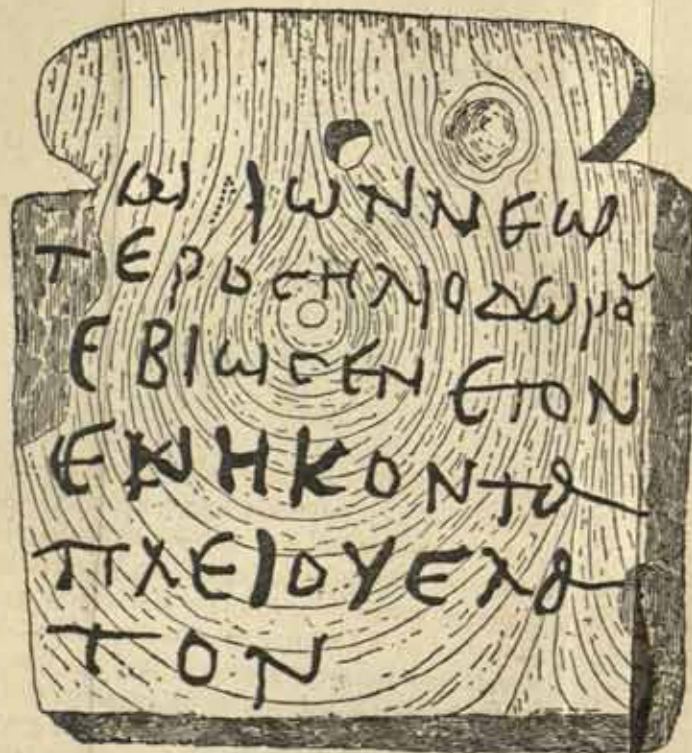 ΩΡΙΩΝΝΕΩ
ΤΕΡΟϹΗΛΙΟΔΩΡΑ
ΕΒΙΩϹΕΝ ΕΤΟΝ
ΕΝΗΚΟΝΤΑ
ΠΛΕΙΟΥΕΛΑ
ΤΟΝ